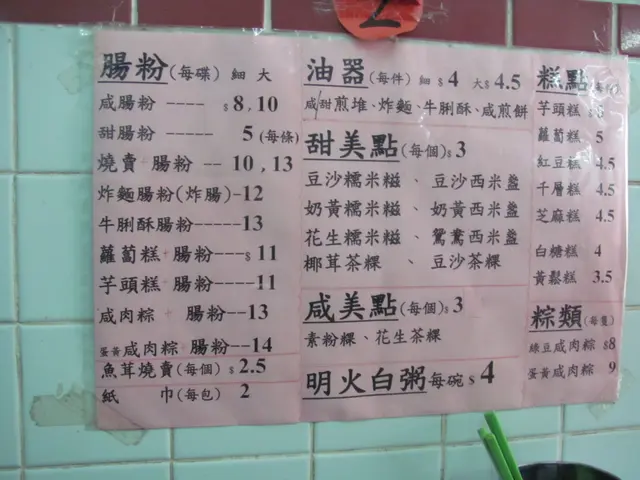 2
腸粉(每碟) 細 大
咸腸粉 ---- $8,10
甜腸粉 ----- 5(每條)
燒賣+腸粉 -- 10,13
炸麵腸粉(炸腸)-12
牛脷酥腸粉-----13
蘿蔔糕+腸粉---$11
芋頭糕+腸粉----11
咸肉粽+腸粉--13
蛋黃咸肉粽+腸粉--14
魚茸燒賣(每個) $2.5
紙 巾(每包) 2
油器(每件) 細$4 大$4.5
咸/甜煎堆、炸麵、牛脷酥、咸煎餅
甜美點(每個)$3
豆沙糯米糍、豆沙西米盞
奶黃糯米糍、奶黃西米盞
花生糯米糍、鴛鴦西米盞
椰茸茶粿、豆沙茶粿
咸美點(每個)$3
素粉粿、花生茶粿
明火白粥每碗$4
糕點
芋頭糕 $5
蘿蔔糕 5
紅豆糕 4.5
千層糕 4.5
芝麻糕 4.5
白糖糕 4
黃鬆糕 3.5
粽類(每隻)
綠豆咸肉粽 $8
蛋黃咸肉粽 9